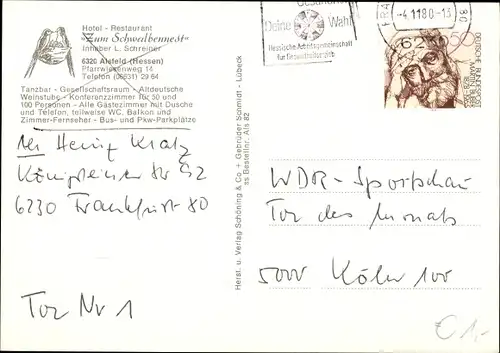 Hotel - Restaurant
"Zum Schwalbennest"
Inhaber L. Schreiner
6320 Alsfeld (Hessen)
Pfarrwiesenweg 14
Telefon (06631) 29 64
Tanzbar - Gesellschaftsraum - Altdeutsche
Weinstube - Konferenzzimmer für 50 und
100 Personen - Alle Gästezimmer mit Dusche
und Telefon, teilweise WC, Balkon und
Zimmer-Fernseher - Bus- und Pkw-Parkplätze
Heinz Kratz
Königsteiner Str 92
6230 Frankfurt 80
Tor Nr 1
Herst. u. Verlag Schöning & Co + Gebrüder Schmidt - Lübeck
ss Bestellnr. Als 82
Deine Wahl
Hessische Arbeitsgemeinschaft
für Gesundheitserziehung
-4.11.80-13
80
62
50
DEUTSCHE BUNDESPOST
MARTIN BUBER
WDR-Sportschau
Tor des Monats
5000 Köln 100
€ 1,-